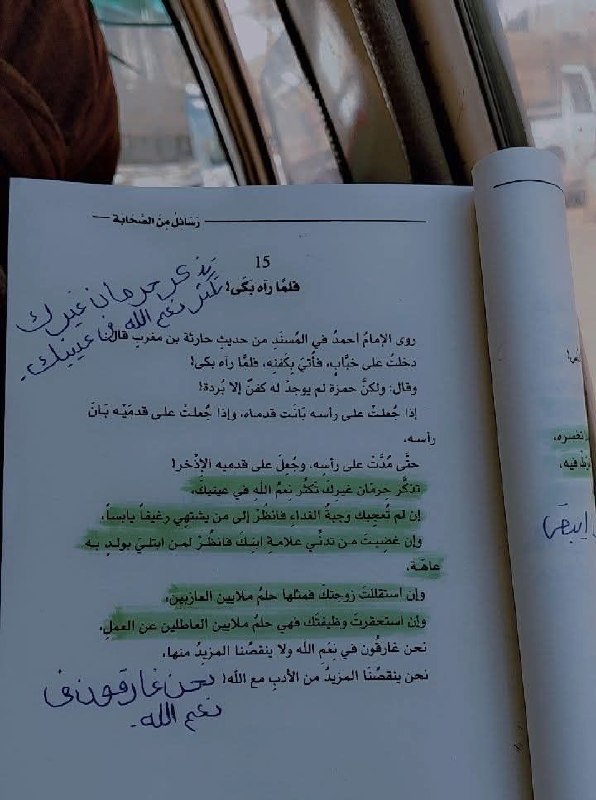 رَسَائلُ مِنَ الصَّحَابة
15
فلمَّا رآه بَكَى!
تذكر حرمان غيرك
تكثر نعم الله في عينيك.
روى الإمامُ أحمدُ في المُسنَدِ من حديثِ حارثة بن مغرب قال:
دخلتُ على خبَّاب، فأُتيَ بِكفنِه، فلمَّا رآه بكى!
وقال: ولكنَّ حمزة لم يوجدْ له كفنٌ إلا بُردة!
إذا جُعلتْ على رأسه بَانَت قدماه، وإذا جُعلتْ على قدمَيْه بَانَ
رأسه،
حتَّى مُدَّتْ على رأسِه، وجُعِلَ على قدميه الإذْخر!
تذكَّر حِرمَان غيرِكَ تَكثُر نِعَمُ اللهِ في عينيكَ،
إن لم تُعجِبك وجبةُ الغداءِ فانظرْ إلى من يشتهِي رغيفاً يابساً،
وإن غضِبتَ من تدنِّي علامةِ ابنِكَ فانظُرْ لمن ابتليَ بولدٍ به
عاهة،
وإن استقللتَ زوجتكَ فمثلها حلمُ ملايين العازبين،
وإن استحقرتَ وظيفتَك فهي حلمُ ملايين العاطلين عن العملِ،
نحن غارقُون في نعَمِ الله ولا ينقصُنا المزيدُ منها،
نحن ينقصُنَا المزيدُ من الأدبِ مع الله!
نحن غارقون في
نعم الله.
تفسره،